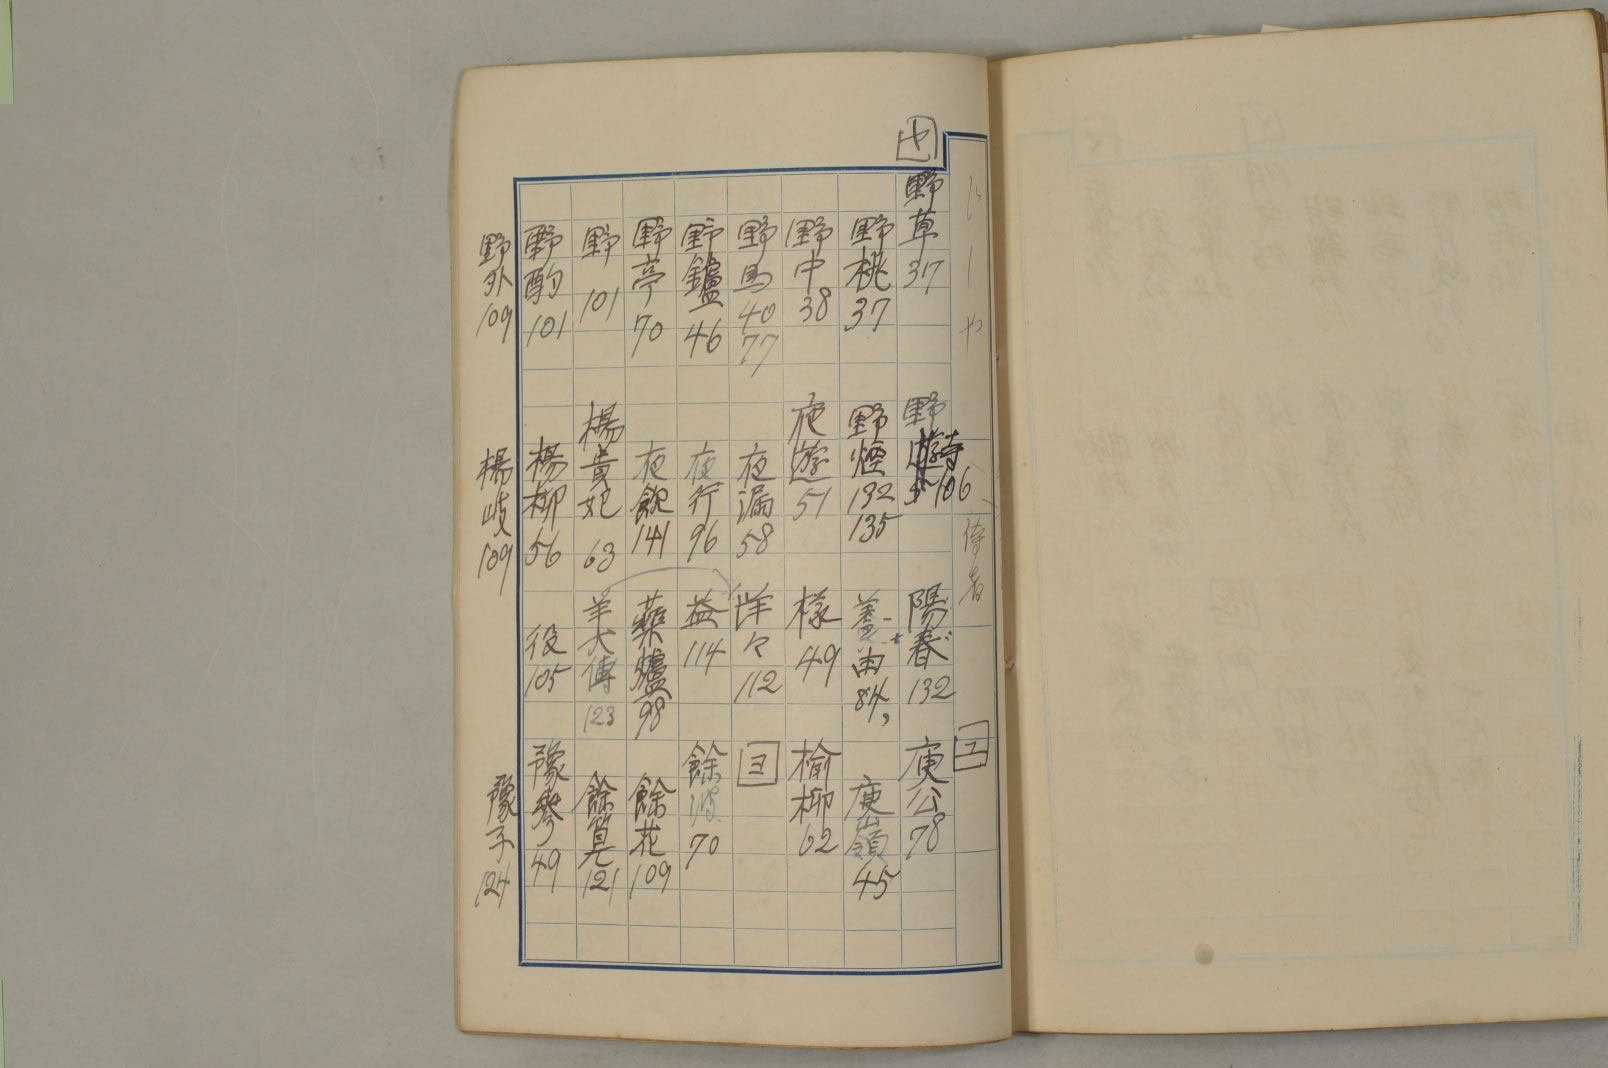 や
野草 37
野桃 37
野中 38
野馬 40 77
野鑪 46
野亭 70
野 101
野酌 101
野外 109
野寺 106
野煙 132 135
夜遊 51
夜漏 58
夜行 96
夜飲 141
楊貴妃 63
楊柳 56
楊岐 109
侍者
陽春 132
養由 84,
様 49
洋々 112
益 114
藥爐 98
羊太傅 123
役 105
ユ
庾公 78
庾嶺 45
榆柳 62
ヨ
餘波 70
餘花 109
餘算 121
豫参 49
豫子 124